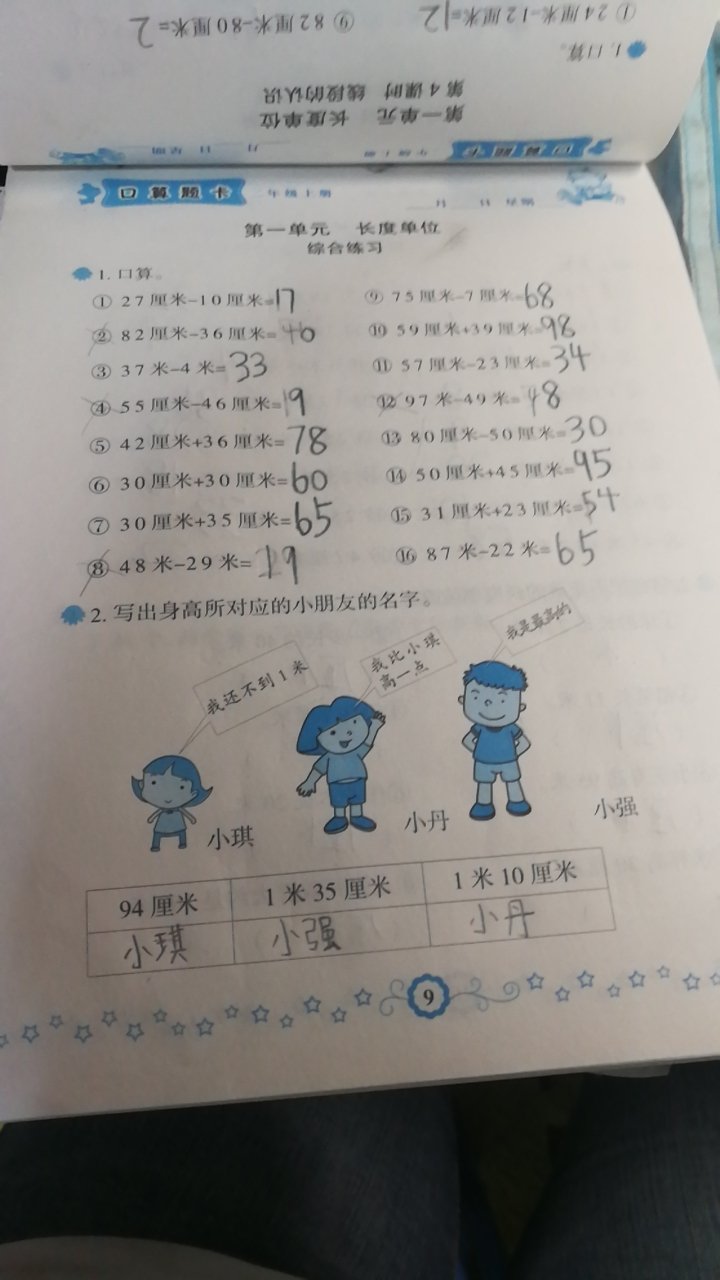 ① 24厘米-12厘米=12 ⑨ 82厘米-80厘米=2
1. 口算。
第4课时 线段的认识
第一单元 长度单位
口算题卡 二年级上册 月 日 星期
口算题卡 二年级上册 月 日 星期
第一单元 长度单位
综合练习
1. 口算。
① 27厘米-10厘米=17 ⑨ 75厘米-7厘米=68
② 82厘米-36厘米=46 ⑩ 59厘米+39厘米=98
③ 37米-4米=33 ⑪ 57厘米-23厘米=34
④ 55厘米-46厘米=19 ⑫ 97米-49米=48
⑤ 42厘米+36厘米=78 ⑬ 80厘米-50厘米=30
⑥ 30厘米+30厘米=60 ⑭ 50厘米+45厘米=95
⑦ 30厘米+35厘米=65 ⑮ 31厘米+23厘米=54
⑧ 48米-29米=19 ⑯ 87米-22米=65
2. 写出身高所对应的小朋友的名字。
我还不到1米
我比小琪
高一点
我是最高的
小琪 小丹 小强
94厘米 1米35厘米 1米10厘米
小琪 小强 小丹
9